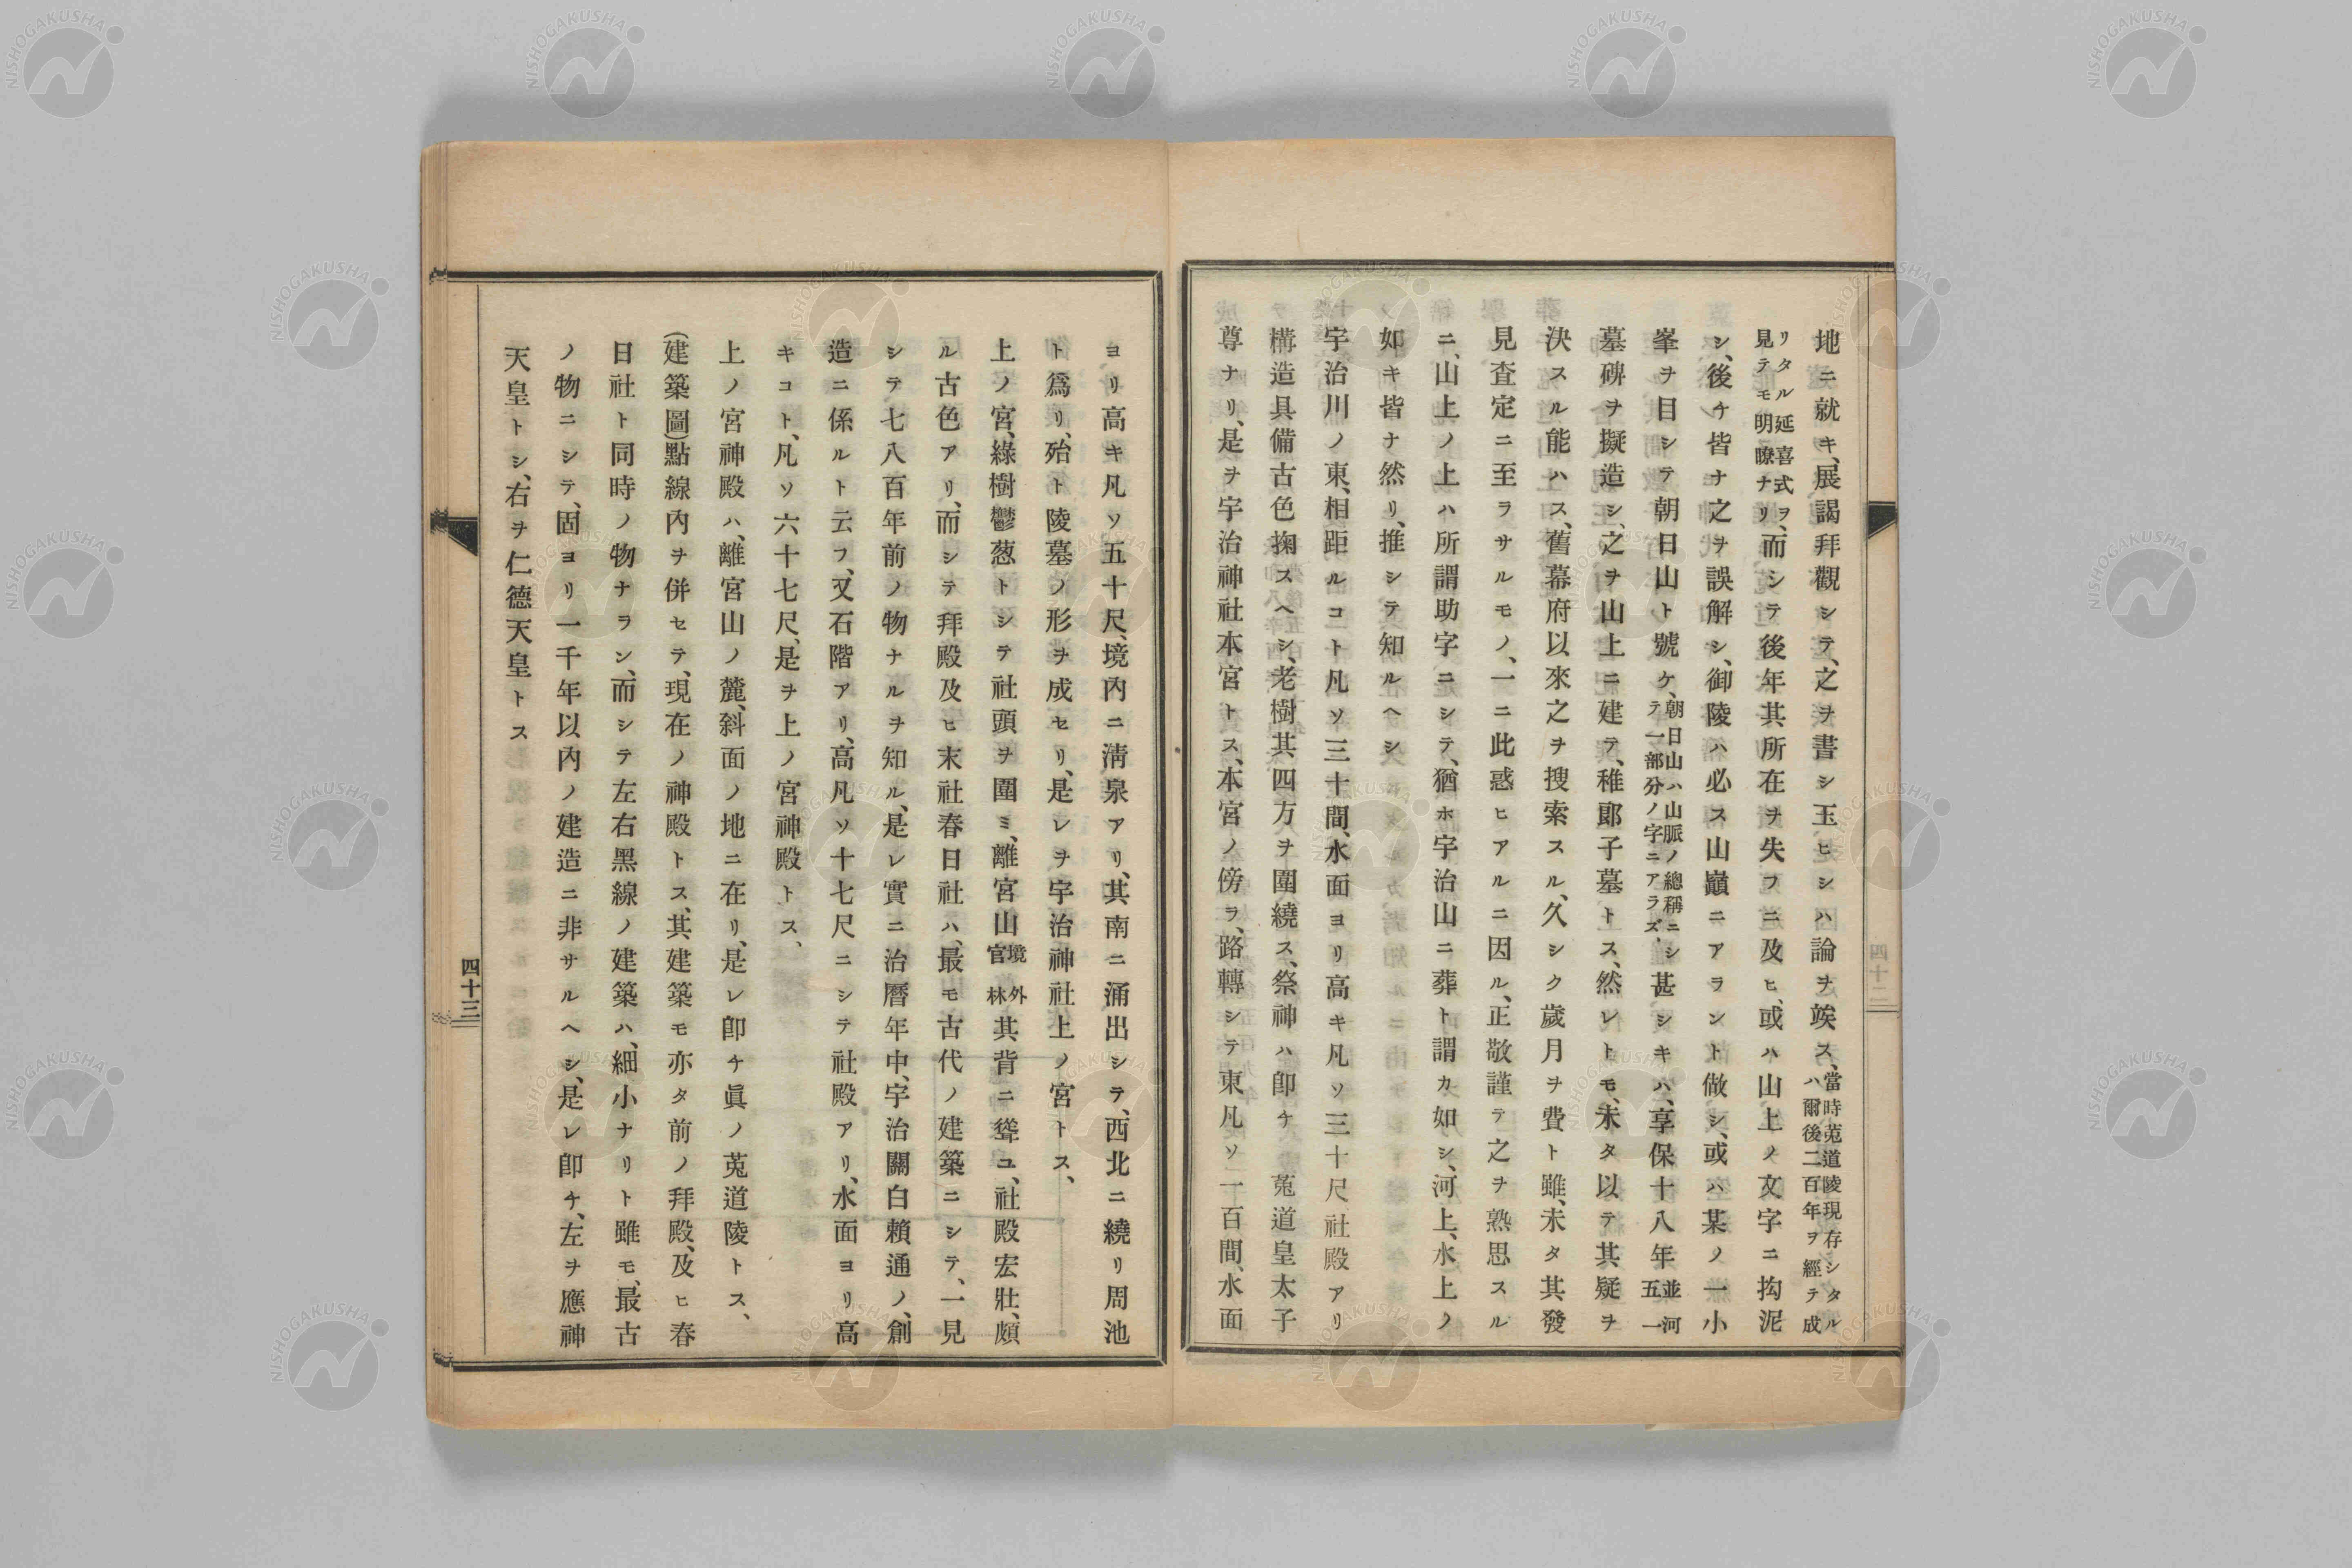 地ニ就キ、展謁拜觀シテ、之ヲ書シ玉ヒシハ論ヲ竢ス、當時菟道陵現存シタルハ爾後二百年ヲ經テ成
リタル延喜式ヲ見テモ明瞭ナリ、而シテ後年其所在ヲ失フニ及ヒ、或ハ山上ノ文字ニ拘泥
シ、後チ皆ナ之ヲ誤解シ、御陵ハ必ス山巓ニアヲント做シ、或ハ某ノ一小
峯ヲ目シテ朝日山ト號ケ、朝日山ハ山脈ノ總稱ニシテ一部分ノ字ニアラズ、甚シキハ、享保十八年並河五一
墓碑ヲ擬造シ、之ヲ山上ニ建テ、稚郞子墓トス、然レトモ、未タ以テ其疑ヲ
決スル能ハス、舊幕府以來之ヲ搜索スル、久シク歲月ヲ費ト雖、未タ其發
見査定ニ至ヲサルモノ、一ニ此惑ヒアルニ因ル、正敬謹テ之ヲ熟思スル
ニ、山上ノ上ハ所謂助字ニシテ、猶ホ宇治山ニ葬ト謂カ如シ、河上、水上ノ
如キ皆ナ然リ、推シテ知ルヘシ
宇治川ノ東、相距ルコト凡ソ三十間、水面ヨリ高キ凡ソ三十尺社殿アリ
構造具備古色掬スヘシ、老樹其四方ヲ圍繞ス、祭神ハ卽チ菟道皇太子
尊ナリ、是ヲ宇治神社本宮トス、本宮ノ傍ラ、路轉シテ東凡ソ一百間、水面
四十二
ヨリ高キ凡ソ五十尺、境內ニ淸泉アリ、其南ニ涌出シテ、西北ニ繞リ周池
ト爲リ、殆ト陵墓ノ形ヲ成セリ、是レヲ宇治神社上ノ宮トス、
上ノ宮、綠樹鬱葱トシテ社頭ヲ圍ミ、離宮山境外官林其背ニ聳ユ、社殿宏壯、頗
ル古色アリ、而シテ拜殿及ヒ末社春日社ハ、最モ古代ノ建築ニシテ、一見
シテ、七八百年前ノ物ナルヲ知ル、是レ實ニ治曆年中、宇治關白賴通ノ、創
造ニ係ルト云フ、又石階アリ、高凡ソ十七尺ニシテ社殿アリ、水面ヨリ高
キコト、凡ソ六十七尺、是ヲ上ノ宮神殿トス、
上ノ宮神殿ハ、離宮山ノ麓、斜面ノ地ニ在リ、是レ卽チ眞ノ菟道陵トス、
(建築圖)點線內ヲ併セテ、現在ノ神殿トス、其建築モ亦タ前ノ拜殿、及ヒ春
日社ト同時ノ物ナラン、而シテ左右黑線ノ建築ハ、細小ナリト雖モ、最古
ノ物ニシテ、固ヨリ一千年以內ノ建造ニ非サルヘシ、是レ卽チ、左ヲ應神
天皇トシ、右ヲ仁德天皇トス
四十三